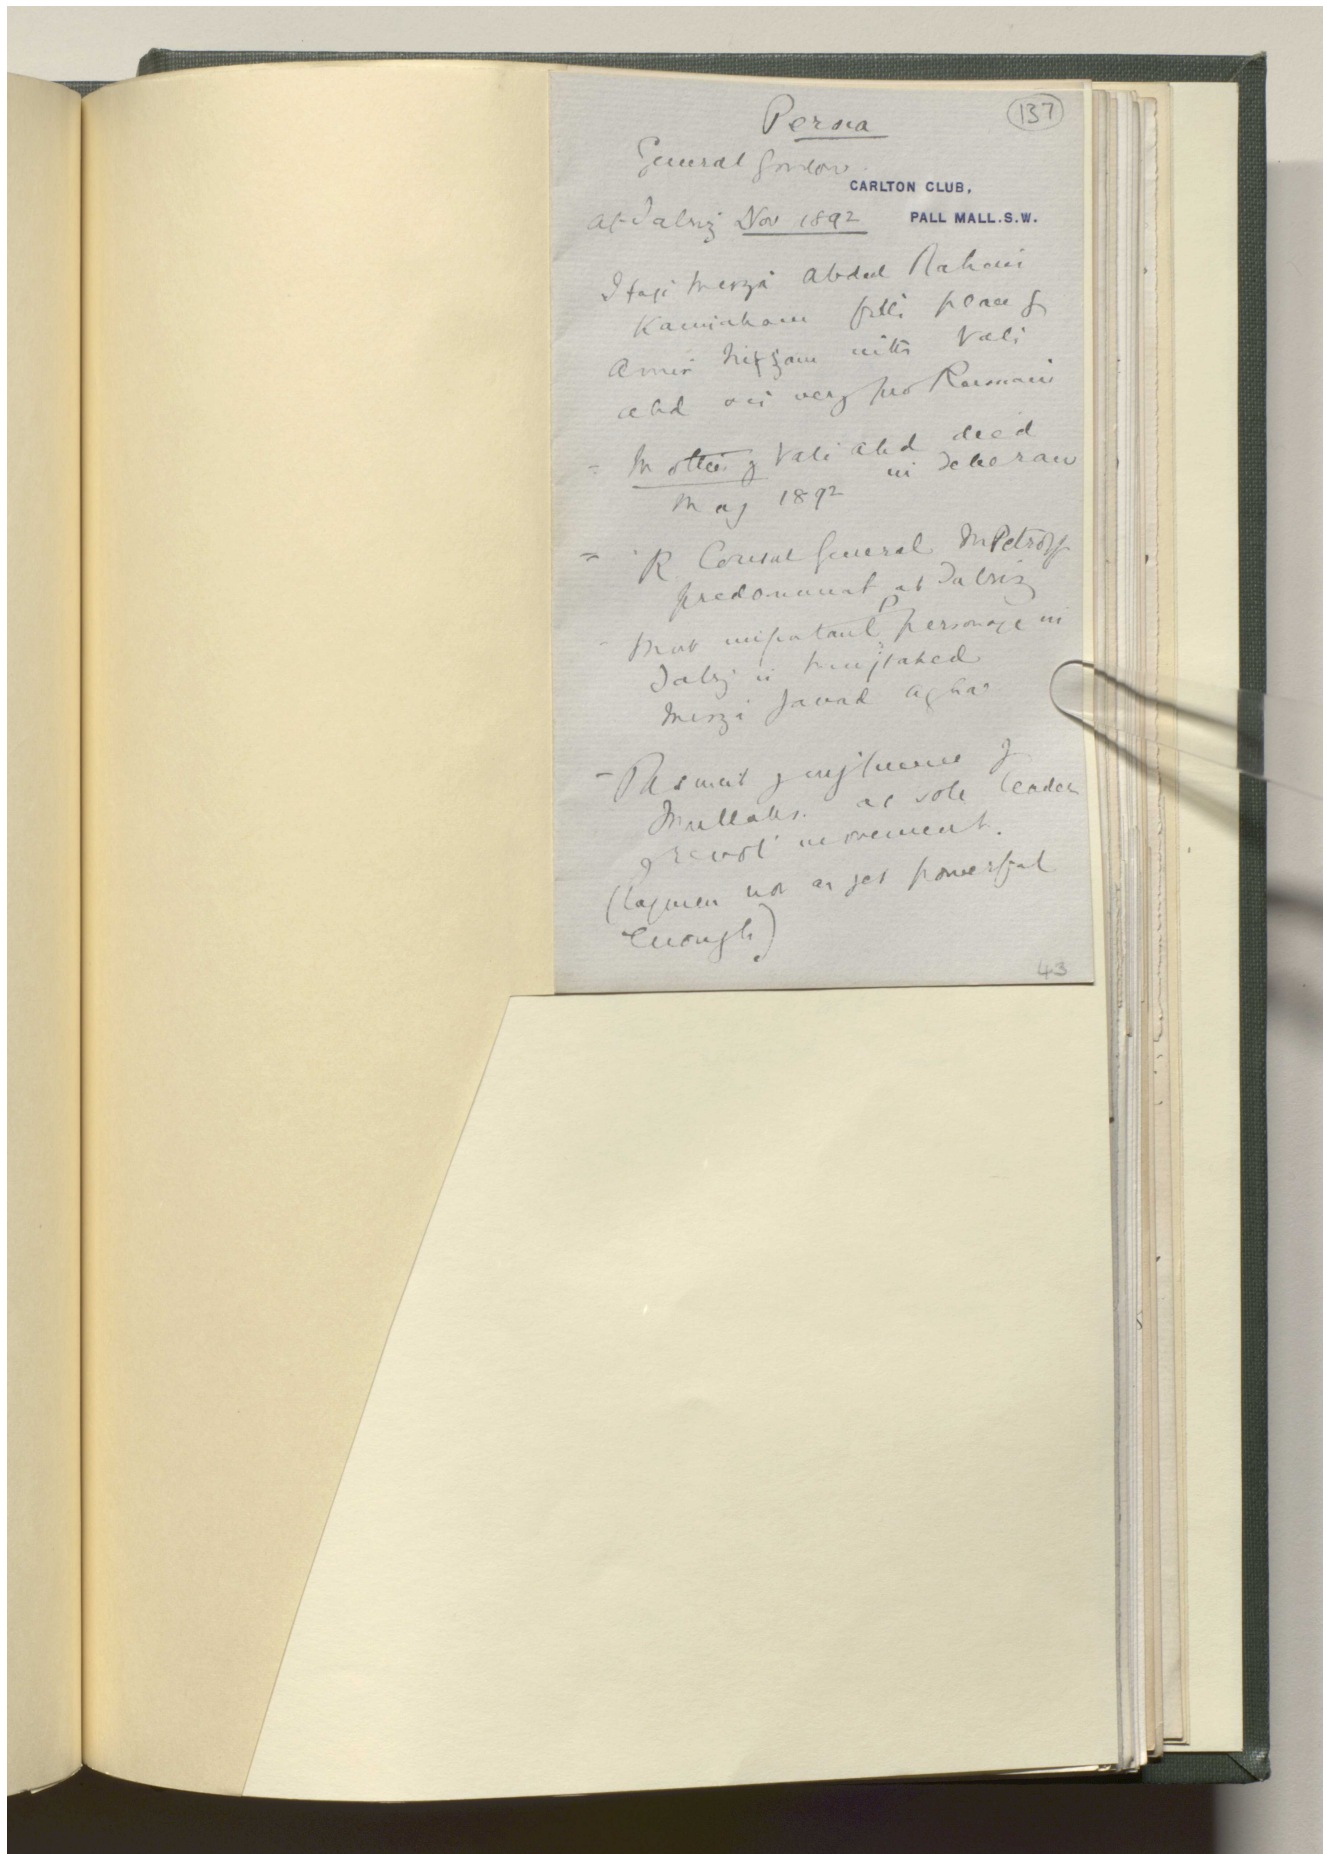 Persia
137
General Gordon
CARLTON CLUB,
PALL MALL.S.W.
at Tabriz Nov 1892
Haji Mirza Abdul Rahim
fills place of
Amir Nizam with Vali
ahd is very pro Russian
= Mother of Vali ahd died
in Teheran
May 1892
= R. Consul General M Petroff
predominant at Tabriz
- Most important Personage in
Tabriz is Mujtahed
Mirza Javad Agha
- influence of
Mullahs. as sole leaders
of revolt movement.
(laymen not as yet powerful
enough)
43